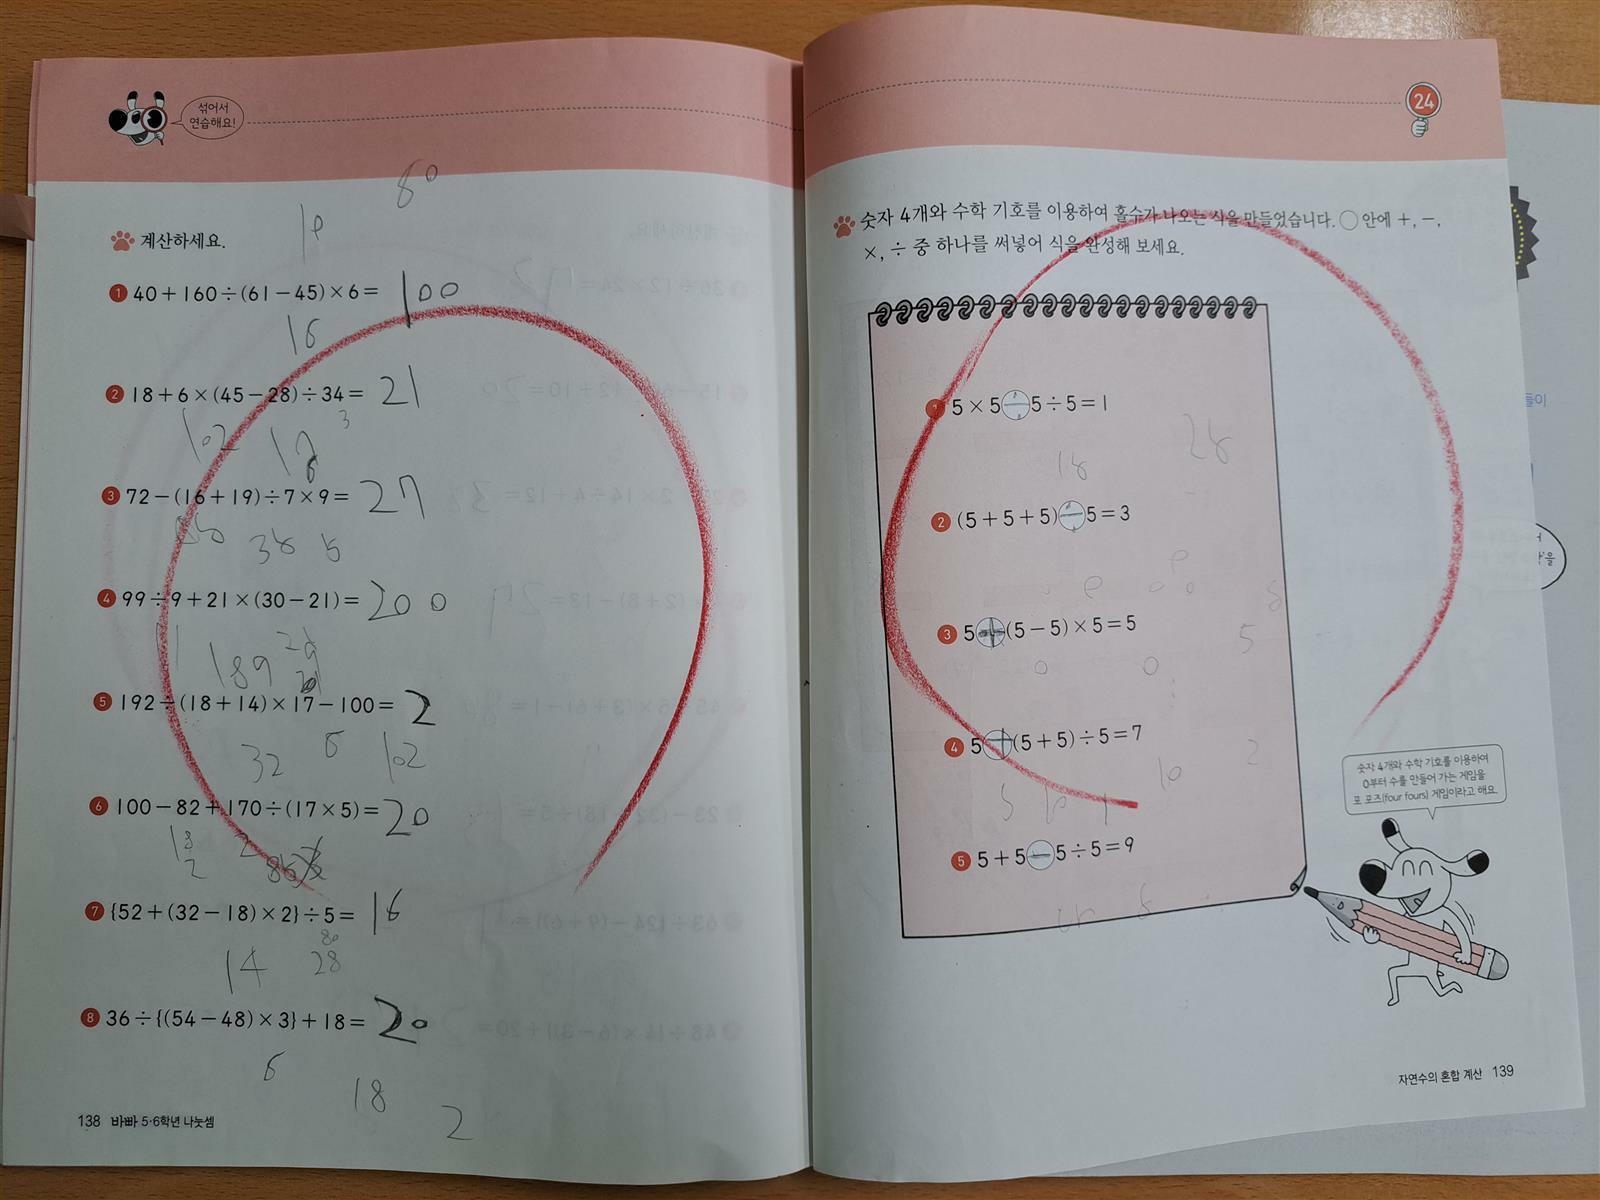 섞어서
연습해요!
80
10
계산하세요.
1 40+160÷(61-45)×6= 100
16
2 18+6×(45-28)÷34= 21
102 3
3 72-(16+19)÷7×9= 27
5
4 99÷9+21×(30-21)= 200
189
5 192÷(18+14)×17-100= 2
32 6 102
6 100-82+170÷(17×5)= 20
18 2
2
7 {52+(32-18)×2}÷5= 16
80
14 28
8 36÷{(54-48)×3}+18= 20
6
18
2
138 바빠 5·6학년 나눗셈
24
숫자 4개와 수학 기호를 이용하여 홀수가 나오는 식을 만들었습니다. ○ 안에 +, -,
×, ÷ 중 하나를 써넣어 식을 완성해 보세요.
1 5×5÷5÷5=1
2 (5+5+5)÷5=3
3 5+(5-5)×5=5
5
0 0
4 5+(5+5)÷5=7
10 2
5 5+5-5÷5=9
숫자 4개와 수학 기호를 이용하여
0부터 수를 만들어 가는 게임을
포 포즈(four fours) 게임이라고 해요.
자연수의 혼합 계산 139